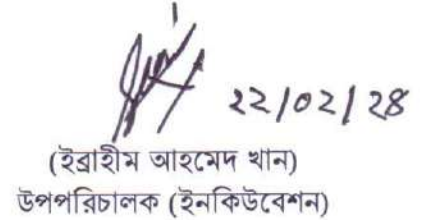 ২২/০২/২৪
(ইব্রাহীম আহমেদ খান)
উপপরিচালক (ইনকিউবেশন)